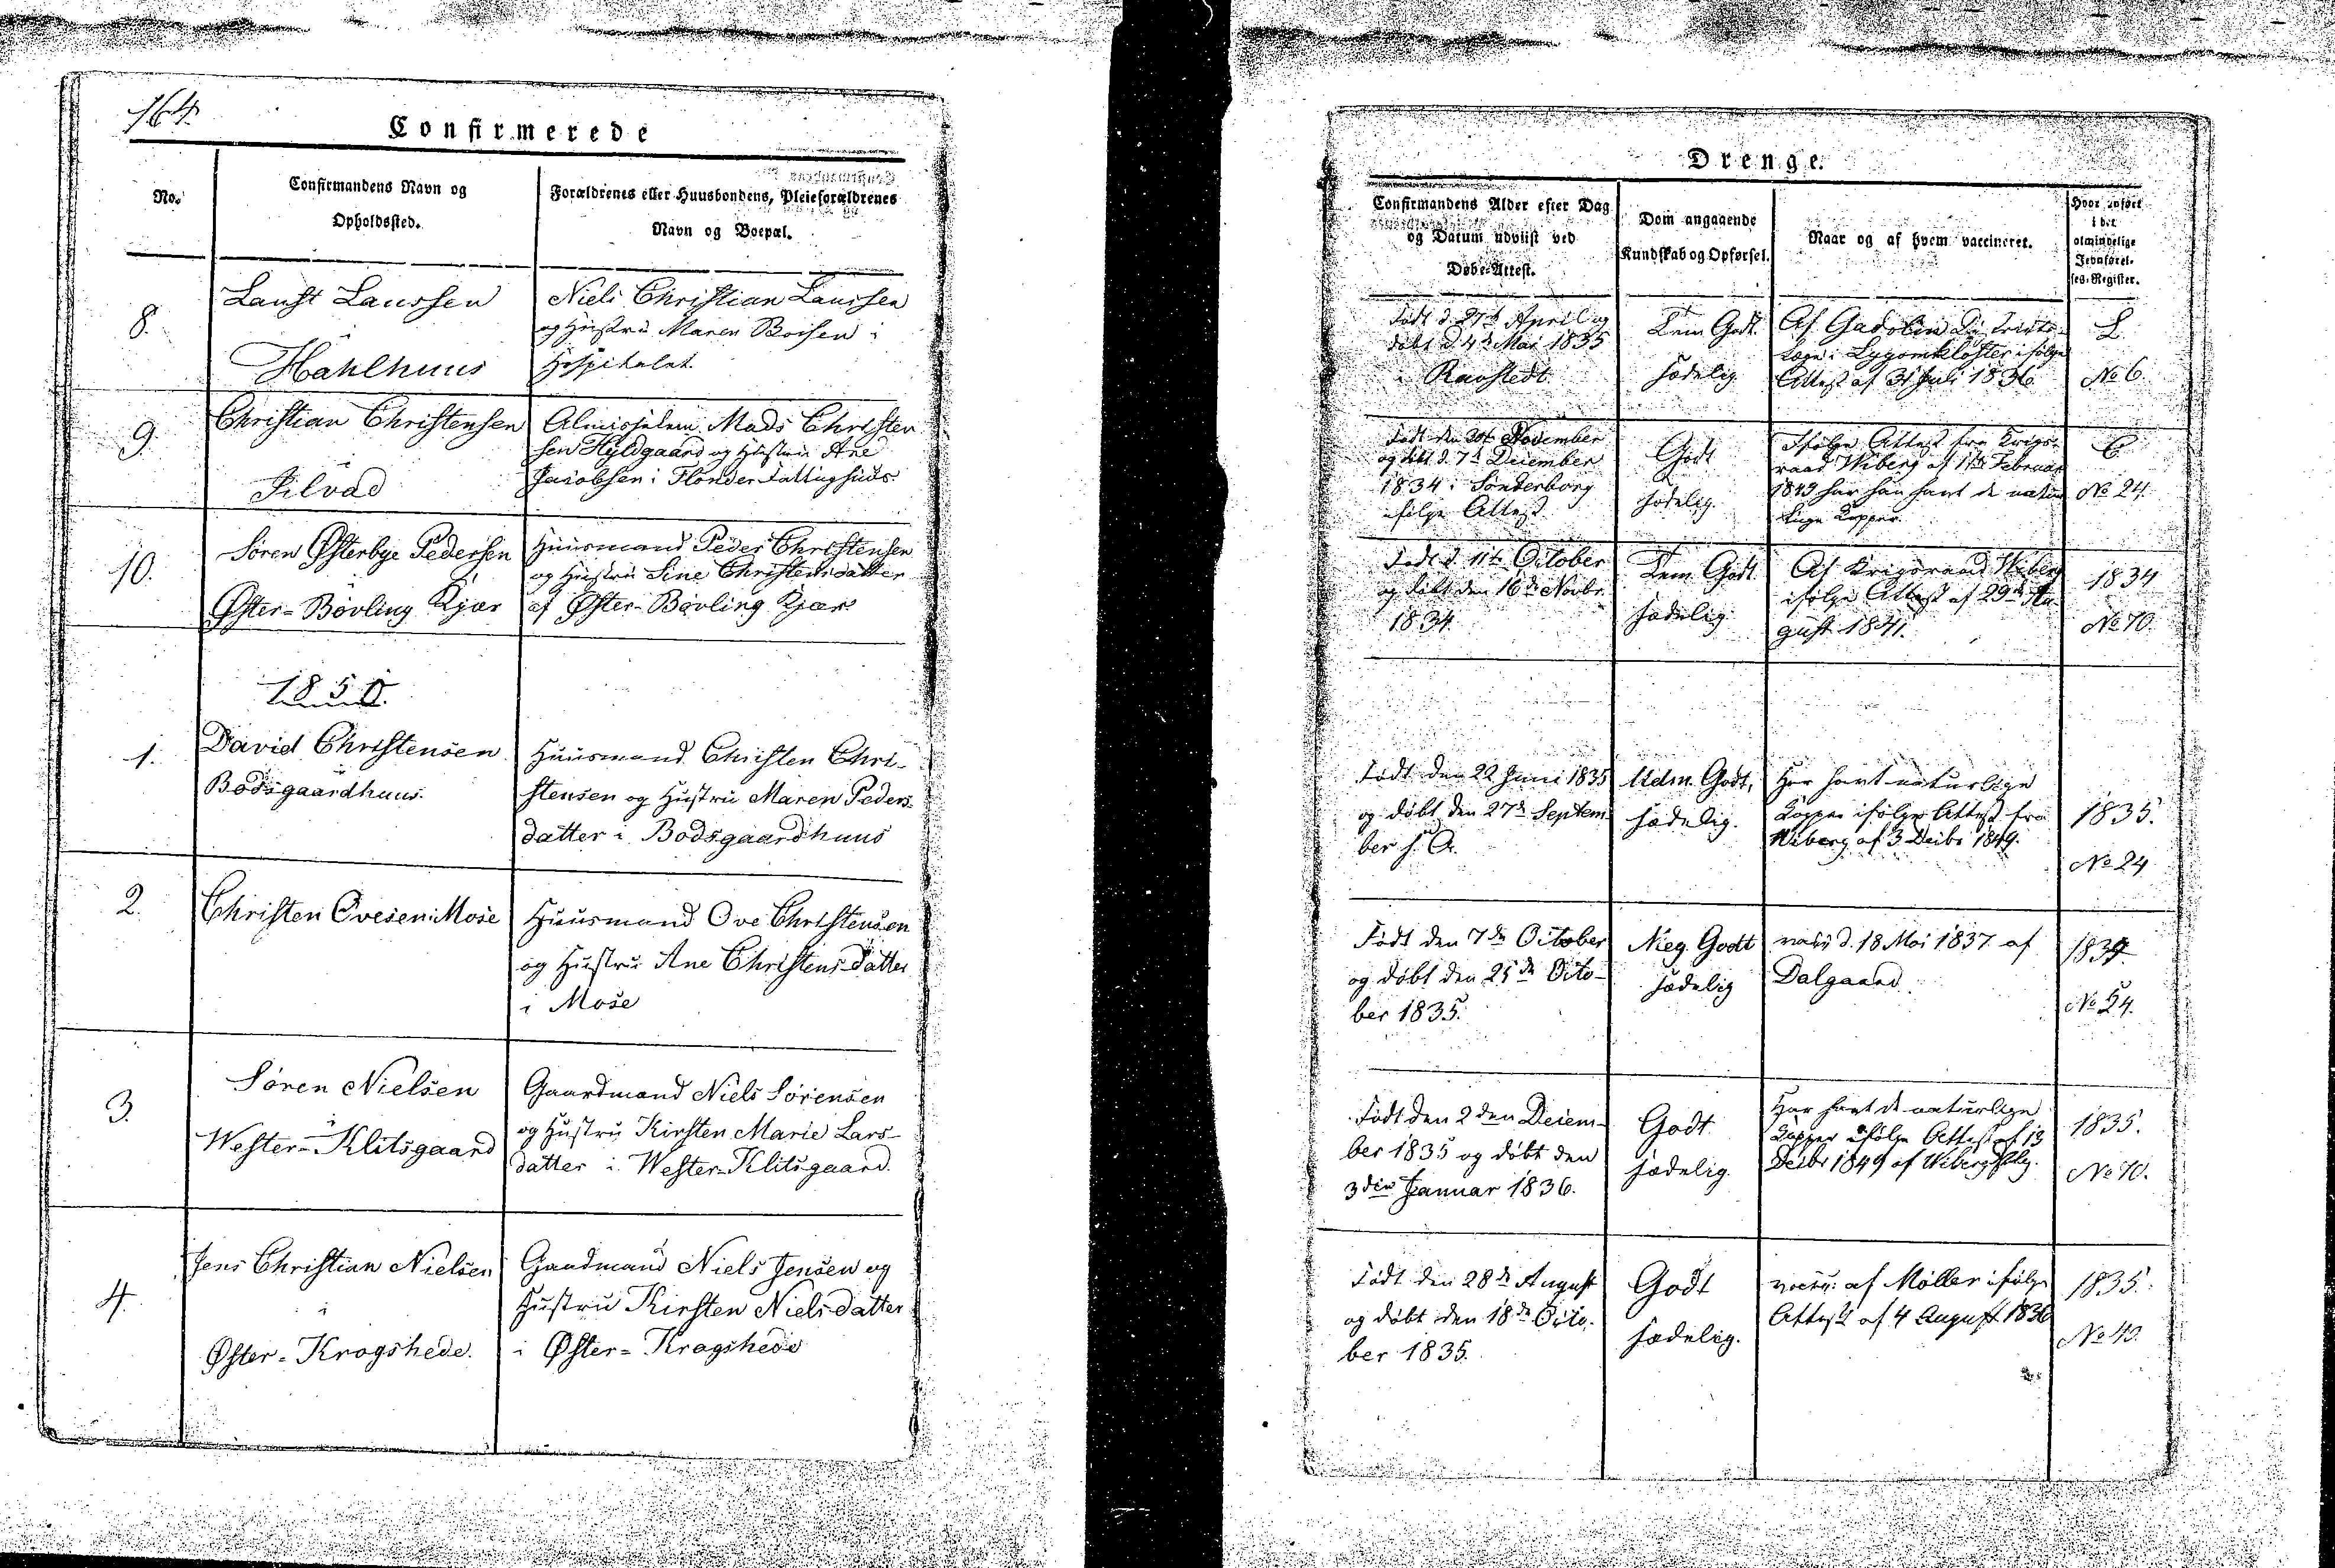 164.
Confirmerede
No.
Confirmandens Navn og
Opholdssted.
Forældrenes eller Huusbondens, Pleieforældrenes
Navn og Boepæl.
8.
Laust Laussen
i
Hahlhuus
Niels Christian Laussen
og Hustru Maren Boisen i
Hospitalet.
9.
Christian Christensen
i
Silvad
Almisselem Mads Christen
sen Hyldgaard og Hustru Ane
Jacobsen i Flonder Fattighuus
10.
Søren Østerbye Pedersen
Øster-Bövling Kjær
Huusmand Peder Christensen
og Hustru Sine Christensdatter
af Øster-Bövling Kjær
1850.
1.
David Christensen
i
Bodsgaardhuus.
Huusmand Christen Chri-
stensen og Hustru Maren Peders-
datter i Bodsgaardhuus
2.
Christen Ovesen i Mose
Huusmand Ove Christensen
og Hustru Ane Christens-datter
i Mose
3.
Søren Nielsen
i
Wester-Klitsgaard
Gaardmand Niels Sørensen
og Hustru Kirsten Marie Lars-
datter i Wester-Klitsgaard.
4.
Jens Christian Nielsen
i
Øster-Krogshede.
Gaardmand Niels Jensen og
Hustru Kirsten Nielsdatter
i Øster-Kragshede
Drenge.
Confirmandens Alder efter Dag
og Datum udviist ved
Døbe-Attest.
Dom angaaende
Kundskab og Opførsel.
Naar og af hvem vaccineret.
Hvor indført
i det
almindelige
Jevnførel-
ses-Register.
Født d. 27de April og
døbt d. 4de Mai 1835
i Ravstedt
Tem. Godt.
sædelig.
Af Gadolin Districts-
læge i Lygomkloster ifølge
Attest af 31 Juli 1836
L
No 6.
Født den 30te November
og døbt d. 7de December
1834 i Sønderborg
ifølge Attest
Godt
sædelig.
Ifølge Attest fra Krigs-
raad Wiberg af 11te Februar
1849 har han havt de natur
lige Kopper.
C
No 24.
Født d. 11te October
og døbt den 16de Novbr.
1834.
Tem. Godt
sædelig
Af Krigsraad Wiberg
ifølge Attest af 29de Au-
gust 1841.
1834
No 70.
Født den 22 Juni 1835
og døbt den 27de Septem-
ber s. A.
Udm. Godt,
sædelig.
Har havt naturlige
Kopper ifølge Attest fra
Wiberg af 3 Decbr 1849.
1835.
No 24
Født den 7de October
og døbt den 25de Octo-
ber 1835.
Meg. Godt
sædelig
vacc: d. 18 Mai 1837 af
Dalgaard.
No 54.
Født den 2den Decem-
ber 1835 og døbt den
3die Januar 1836.
Godt
sædelig.
Har havt de naturlige
Kopper ifølge Attest af 13
Decbr 1849 af Wiberg
1835.
No 70.
Født den 28de August
og døbt den 18de Octo-
ber 1835.
Godt
sædelig.
vacc: af Møller ifølge
Attest af 4 August 1836
1835.
No 40.